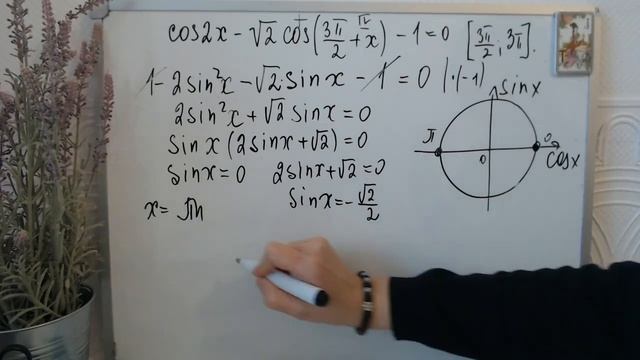 cos2x - √2 cos(3π/2 + x) - 1 = 0 [3π/2; 3π].
+ IV
1 - 2sin²x - √2·sinx - 1 = 0 |·(-1)
2sin²x + √2 sinx = 0
sinx(2sinx + √2) = 0
sinx = 0 2sinx + √2 = 0
x = πn sinx = -√2/2
sinx
π 0 0
cosx